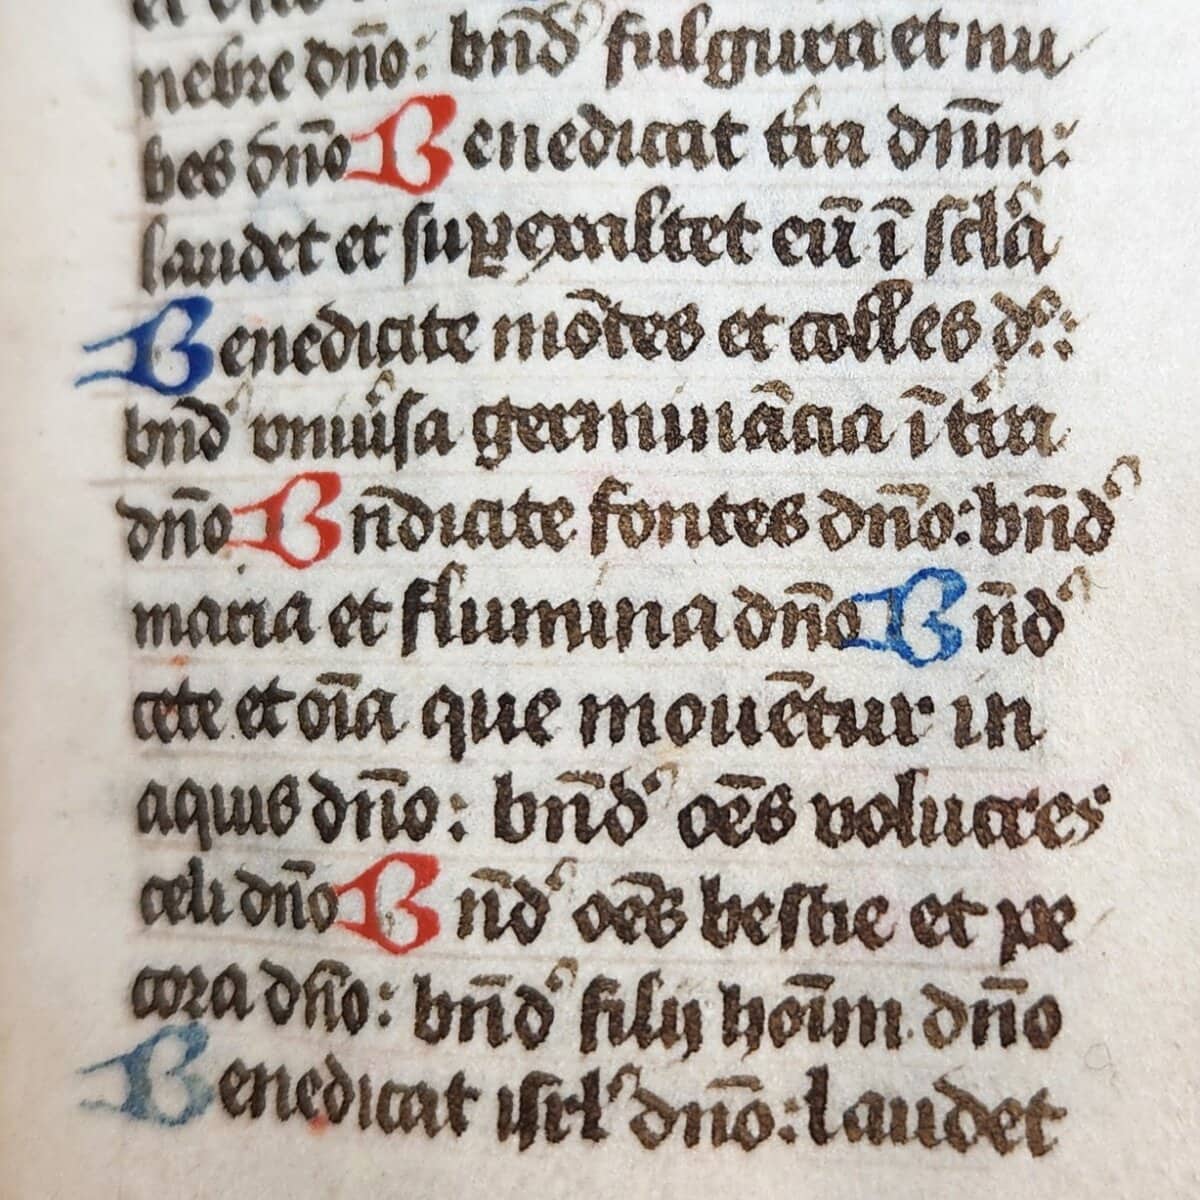 nebre dn̄o: bn̄d' fulgura et nu
bes dn̄o Benedicat t'ra dn̄m:
laudet et suꝑexaltet eū ī sc̄la
Benedicite mōtes et colles d°:
bn̄d' vniu'sa germinācia ī t'ra
dn̄o Bn̄dicite fontes dn̄o: bn̄d'
maria et flumina dn̄o Bn̄d'
cete et oīa que mouētur in
aquis dn̄o: bn̄d' oēs volucres
celi dn̄o Bn̄d' oēs bestie et pe
cora dn̄o: bn̄d' filij hoīm dn̄o
Benedicat isrl' dn̄o: laudet